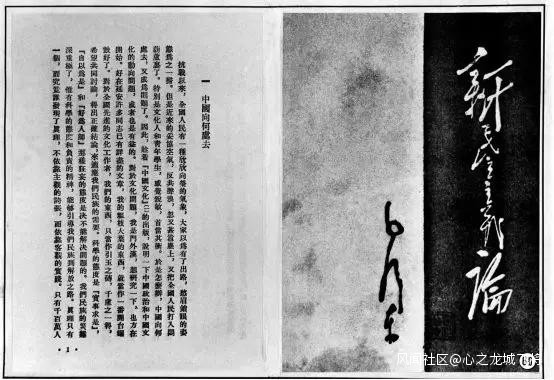 新民主主義論
毛澤東
一 中國向何處去
抗戰以來,全國人民有一種欣欣向榮的氣象,大家以爲有了出路,愁眉鎖眼的姿
態爲之一掃。但是近來的妥協空氣,反共聲浪,忽又甚囂塵上,又把全國人民打入悶
葫蘆裏了。特別是文化人和青年學生,感覺銳敏,首當其衝。於是怎麼辦,中國向何
處去,又成爲問題了。因此,趁着『中國文化』(二)的出版,說明一下中國政治和中國文
化的動向問題,或者也是有益的。對於文化問題,我是門外漢,想研究一下,也方在
開始。好在延安許多同志已有詳盡的文章,我的粗枝大葉的東西,就當作一番開台鑼
鼓好了。對於全國先進的文化工作者,我們的東西,只當作引玉之磚,千慮之一得,
希望共同討論,得出正確結論,來適應我們民族的需要。科學的態度是『實事求是』,
『自以爲是』和『好爲人師』那樣狂妄的態度是決不能解決問題的。我們民族的災難
深重極了,惟有科學的態度和負責的精神,能夠引導我們民族到解放之路。眞理只有
一個,而究竟誰發現了眞理,不依靠主觀的誇張,而依靠客觀的實踐。只有千百萬人
·1·
风闻社区@心之龙城飞将